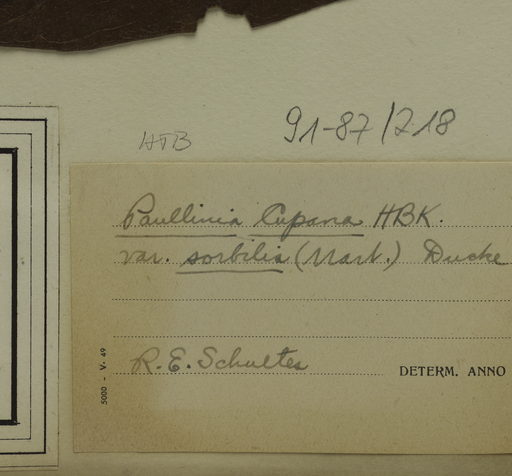 HTB
91-87/218
Paullinia Cupana HBK.
var. sorbilis (Mart.) Ducke
R. E. Schultes
DETERM. ANNO
5000 - V- 49